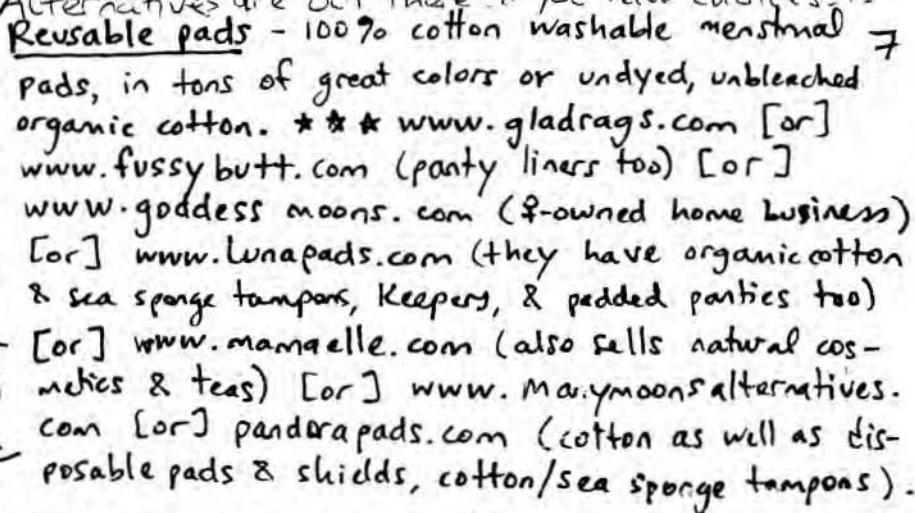 Alternatives are out there if you have
Reusable pads - 100% cotton washable menstrual 7
pads, in tons of great colors or undyed, unbleached
organic cotton. ★ ★ ★ www.gladrags.com [or]
www.fussybutt.com (panty liners too) [or]
www.goddess moons.com (♀-owned home business)
[or] www.Lunapads.com (they have organic cotton
& sea sponge tampons, Keepers, & padded panties too)
[or] www.mamaelle.com (also sells natural cos-
metics & teas) [or] www.marymoonsalternatives.
com [or] pandorapads.com (cotton as well as dis-
posable pads & shields, cotton/sea sponge tampons).